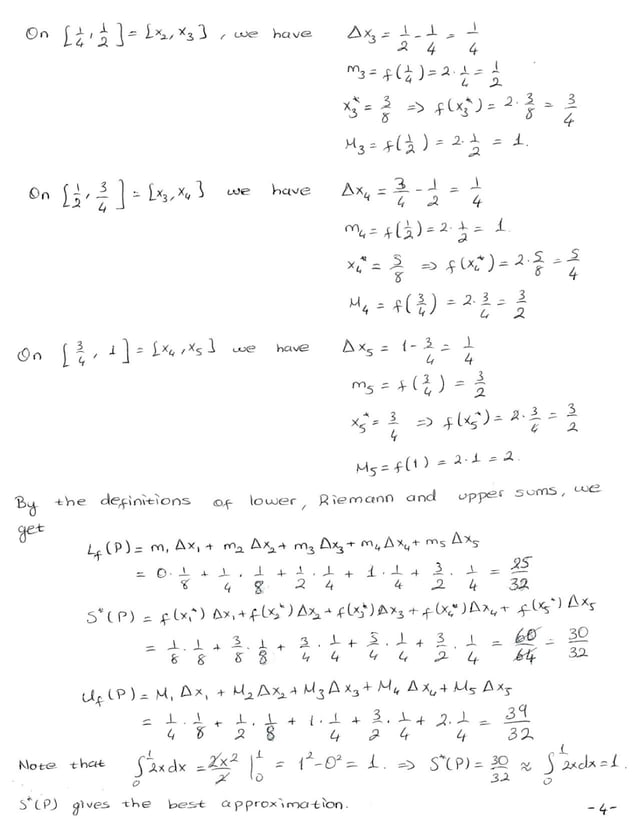 On [1/4, 1/2] = [x₂, x₃], we have Δx₃ = 1/2 - 1/4 = 1/4
m₃ = f(1/4) = 2·1/4 = 1/2
x₃* = 3/8 ⇒ f(x₃*) = 2·3/8 = 3/4
M₃ = f(1/2) = 2·1/2 = 1.
On [1/2, 3/4] = [x₃, x₄] we have Δx₄ = 3/4 - 1/2 = 1/4
m₄ = f(1/2) = 2·1/2 = 1
x₄* = 5/8 ⇒ f(x₄*) = 2·5/8 = 5/4
M₄ = f(3/4) = 2·3/4 = 3/2
On [3/4, 1] = [x₄, x₅] we have Δx₅ = 1 - 3/4 = 1/4
m₅ = f(3/4) = 3/2
x₅* = 3/4 ⇒ f(x₅*) = 2·3/4 = 3/2
M₅ = f(1) = 2·1 = 2.
By the definitions of lower, Riemann and upper sums, we
get
L_f(P) = m₁ Δx₁ + m₂ Δx₂ + m₃ Δx₃ + m₄ Δx₄ + m₅ Δx₅
= 0·1/8 + 1/4·1/8 + 1/2·1/4 + 1·1/4 + 3/2·1/4 = 25/32
S*(P) = f(x₁*) Δx₁ + f(x₂*) Δx₂ + f(x₃*) Δx₃ + f(x₄*) Δx₄ + f(x₅*) Δx₅
= 1/8·1/8 + 3/8·1/8 + 3/4·1/4 + 5/4·1/4 + 3/2·1/4 = 60/64 = 30/32
U_f(P) = M₁ Δx₁ + M₂ Δx₂ + M₃ Δx₃ + M₄ Δx₄ + M₅ Δx₅
= 1/4·1/8 + 1/2·1/8 + 1·1/4 + 3/2·1/4 + 2·1/4 = 39/32
Note that ∫₀¹ 2x dx = 2x²/2 |₀¹ = 1² - 0² = 1. ⇒ S*(P) = 30/32 ≈ ∫₀¹ 2x dx = 1.
S*(P) gives the best approximation. -4-